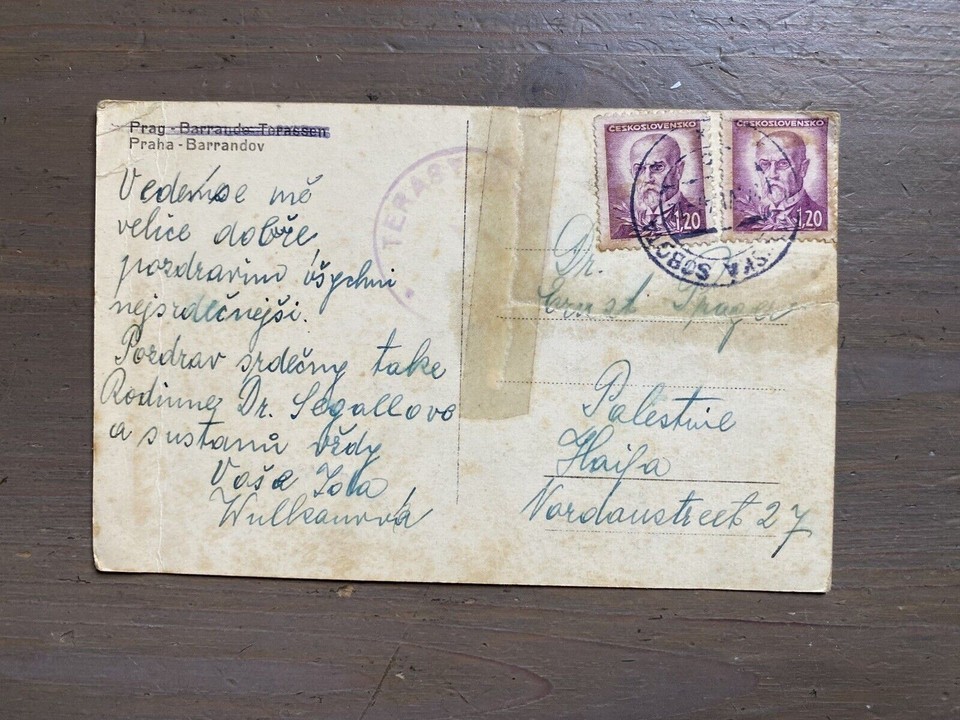 Prag - Barrande-Terassen
Praha - Barrandov
Vedeme se mě
velice dobře
pozdravim všychni
nejsrdečnejši.
Pozdrav srdečny take
Rodinne Dr. Segallove
a sustanů vždy
Vaše Jola
Wulkanová
TERAS
ČESKOSLOVENSKO
1,20
ČESKOSLOVENSKO
1,20
SKÁ SOBO
Dr.
Palestine
Haifa
Nordaustreet 27